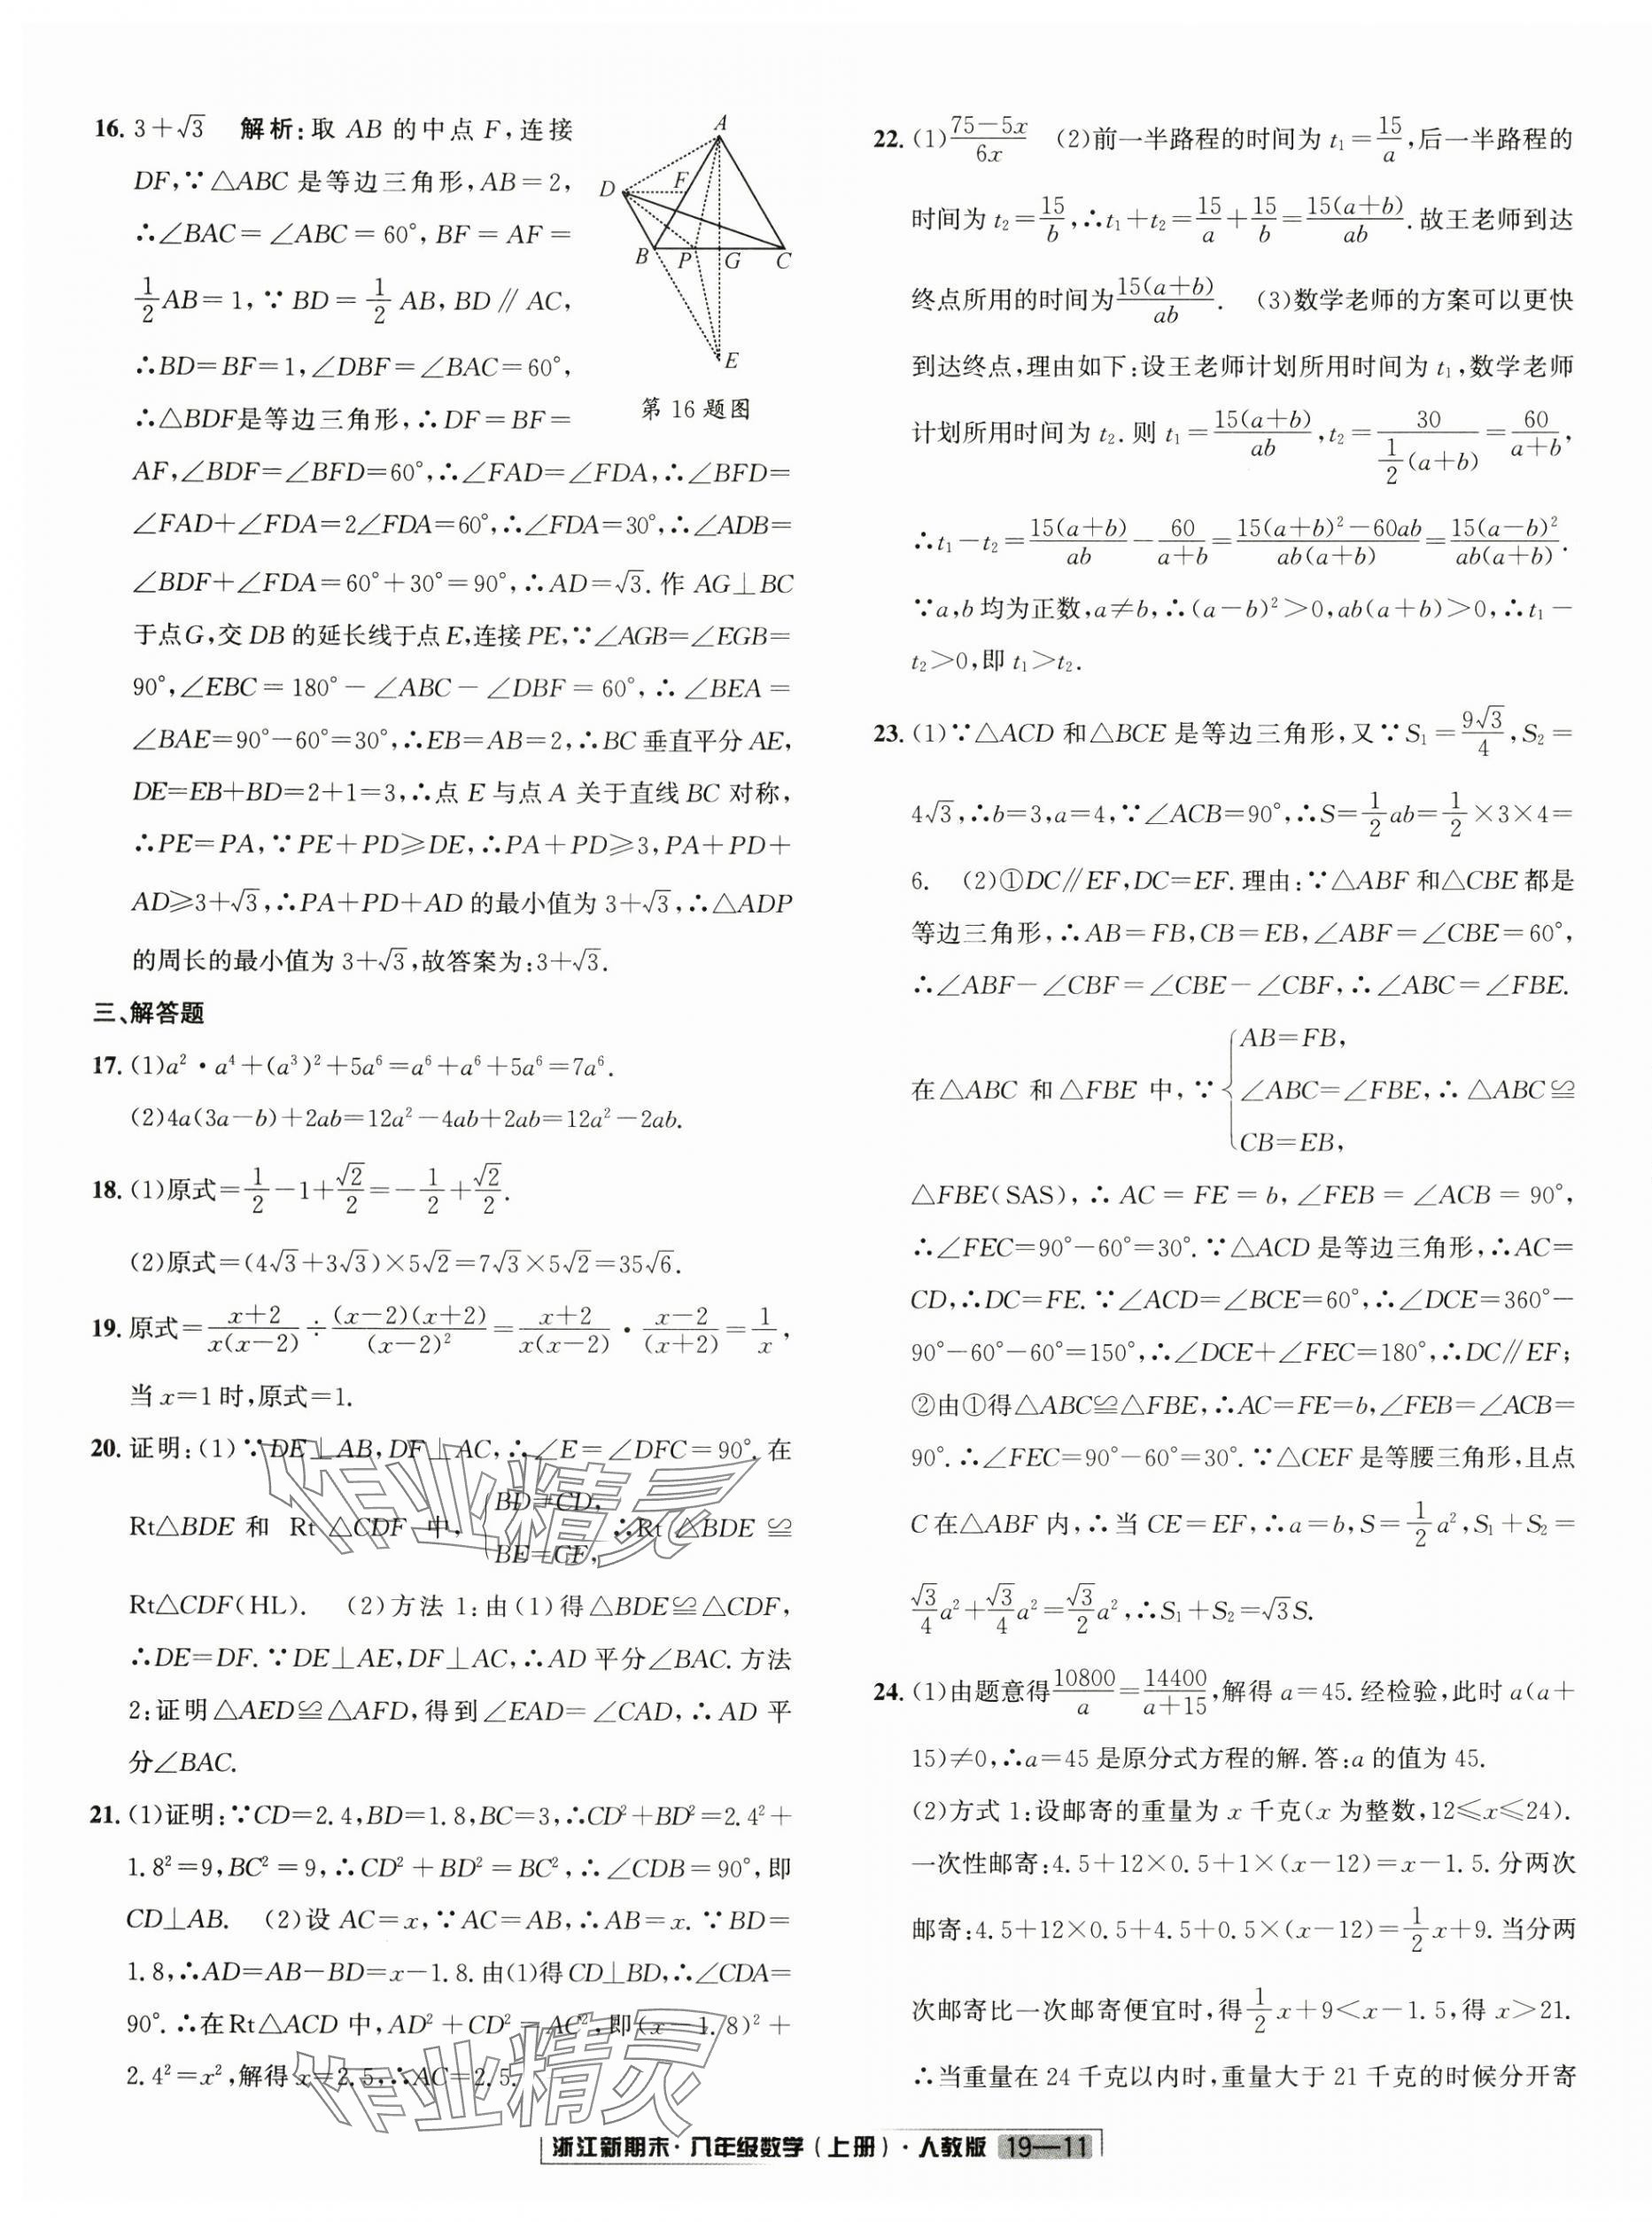 16. 3+√3 解析:取 AB 的中点 F,连接
DF,∵△ABC 是等边三角形,AB=2,
∴∠BAC=∠ABC=60°,BF=AF=
1/2 AB=1,∵BD=1/2 AB,BD∥AC,
∴BD=BF=1,∠DBF=∠BAC=60°,
∴△BDF是等边三角形,∴DF=BF=
A
D
F
B
P
G
C
E
第 16 题图
AF,∠BDF=∠BFD=60°,∴∠FAD=∠FDA,∴∠BFD=
∠FAD+∠FDA=2∠FDA=60°,∴∠FDA=30°,∴∠ADB=
∠BDF+∠FDA=60°+30°=90°,∴AD=√3.作 AG⊥BC
于点G,交 DB 的延长线于点 E,连接 PE,∵∠AGB=∠EGB=
90°,∠EBC=180°-∠ABC-∠DBF=60°,∴∠BEA=
∠BAE=90°-60°=30°,∴EB=AB=2,∴BC 垂直平分 AE,
DE=EB+BD=2+1=3,∴点 E 与点 A 关于直线 BC 对称,
∴PE=PA,∵PE+PD≥DE,∴PA+PD≥3,PA+PD+
AD≥3+√3,∴PA+PD+AD 的最小值为 3+√3,∴△ADP
的周长的最小值为 3+√3,故答案为:3+√3.
三、解答题
17. (1)a²·a⁴+(a³)²+5a⁶=a⁶+a⁶+5a⁶=7a⁶.
(2)4a(3a-b)+2ab=12a²-4ab+2ab=12a²-2ab.
18. (1)原式=1/2-1+√2/2=-1/2+√2/2.
(2)原式=(4√3+3√3)×5√2=7√3×5√2=35√6.
19. 原式=(x+2)/(x(x-2))÷((x-2)(x+2))/((x-2)²)=(x+2)/(x(x-2))·(x-2)/((x+2))=1/x,
当 x=1 时,原式=1.
20. 证明:(1)∵DE⊥AB,DF⊥AC,∴∠E=∠DFC=90°.在
Rt△BDE 和 Rt△CDF 中,{BD=CD, BE=CF, ∴Rt△BDE≌
Rt△CDF(HL). (2)方法 1:由(1)得△BDE≌△CDF,
∴DE=DF.∵DE⊥AE,DF⊥AC,∴AD 平分∠BAC.方法
2:证明△AED≌△AFD,得到∠EAD=∠CAD,∴AD 平
分∠BAC.
21. (1)证明:∵CD=2.4,BD=1.8,BC=3,∴CD²+BD²=2.4²+
1.8²=9,BC²=9,∴CD²+BD²=BC²,∴∠CDB=90°,即
CD⊥AB. (2)设 AC=x,∵AC=AB,∴AB=x.∵BD=
1.8,∴AD=AB-BD=x-1.8.由(1)得CD⊥BD,∴∠CDA=
90°.∴在Rt△ACD 中,AD²+CD²=AC²,即(x-1.8)²+
2.4²=x²,解得 x=2.5,∴AC=2.5.
22. (1)(75-5x)/(6x) (2)前一半路程的时间为 t₁=15/a,后一半路程的
时间为 t₂=15/b,∴t₁+t₂=15/a+15/b=15(a+b)/ab.故王老师到达
终点所用的时间为15(a+b)/ab. (3)数学老师的方案可以更快
到达终点,理由如下:设王老师计划所用时间为 t₁,数学老师
计划所用时间为 t₂.则 t₁=15(a+b)/ab,t₂=30/(1/2(a+b))=60/(a+b),
∴t₁-t₂=15(a+b)/ab-60/(a+b)=(15(a+b)²-60ab)/(ab(a+b))=15(a-b)²/(ab(a+b)).
∵a,b 均为正数,a≠b,∴(a-b)²>0,ab(a+b)>0,∴t₁-
t₂>0,即 t₁>t₂.
23. (1)∵△ACD 和△BCE 是等边三角形,又∵S₁=9√3/4,S₂=
4√3,∴b=3,a=4,∵∠ACB=90°,∴S=1/2 ab=1/2×3×4=
6. (2)①DC∥EF,DC=EF.理由:∵△ABF 和△CBE 都是
等边三角形,∴AB=FB,CB=EB,∠ABF=∠CBE=60°,
∴∠ABF-∠CBF=∠CBE-∠CBF,∴∠ABC=∠FBE.
在△ABC 和△FBE 中,∵{AB=FB, ∠ABC=∠FBE, CB=EB, ∴△ABC≌
△FBE(SAS),∴AC=FE=b,∠FEB=∠ACB=90°,
∴∠FEC=90°-60°=30°.∵△ACD 是等边三角形,∴AC=
CD,∴DC=FE.∵∠ACD=∠BCE=60°,∴∠DCE=360°-
90°-60°-60°=150°,∴∠DCE+∠FEC=180°,∴DC∥EF;
②由①得△ABC≌△FBE,∴AC=FE=b,∠FEB=∠ACB=
90°.∴∠FEC=90°-60°=30°.∵△CEF 是等腰三角形,且点
C 在△ABF 内,∴当 CE=EF,∴a=b,S=1/2 a²,S₁+S₂=
√3/4 a²+√3/4 a²=√3/2 a²,∴S₁+S₂=√3S.
24. (1)由题意得10800/a=14400/(a+15),解得 a=45.经检验,此时 a(a+
15)≠0,∴a=45 是原分式方程的解.答:a 的值为 45.
(2)方式 1:设邮寄的重量为 x 千克(x 为整数,12≤x≤24).
一次性邮寄:4.5+12×0.5+1×(x-12)=x-1.5.分两次
邮寄:4.5+12×0.5+4.5+0.5×(x-12)=1/2 x+9.当分两
次邮寄比一次邮寄便宜时,得1/2 x+9<x-1.5,得 x>21.
∴当重量在 24 千克以内时,重量大于 21 千克的时候分开寄
作业精灵
作业精灵
浙江新期末·八年级数学(上册)·人教版 19—11